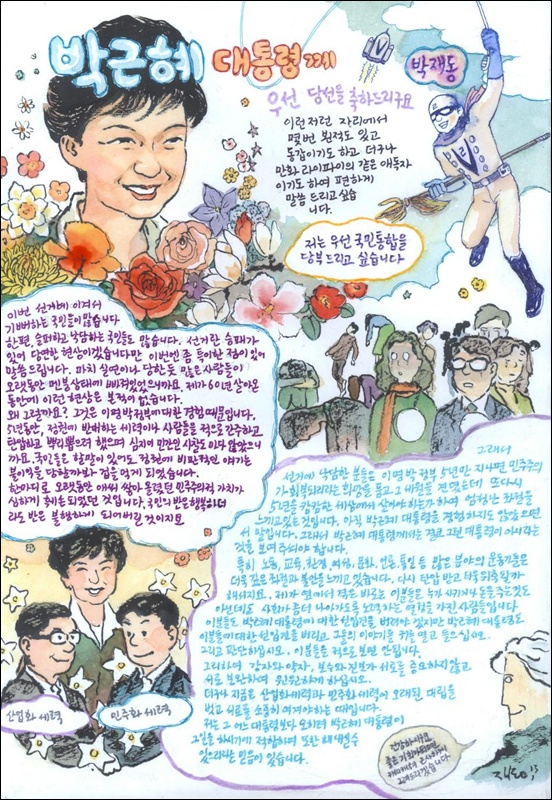 박근혜 대통령 께
박재동
우선 당선을 축하드리구요
이런저런 자리에서
몇번 뵌적도 있고
동갑이기도 하고 더구나
만화 라이파이의 같은 애독자
이기도 하여 편하게
말씀 드리고 싶습
니다.
저는 우선 국민통합을
당부드리고 싶습니다
이번 선거에 이겨서
기뻐하는 국민들이 많습니다
한편, 슬퍼하고 낙담하는 국민들도 많습니다. 선거란 승패가
있어 당연한 현상이겠습니다만 이번엔 좀 특이한 점이 있어
말씀드립니다. 마치 실연이나 당한듯 많은 사람들이
오랫동안 멘붕상태에 빠져있었으니까요. 제가 60년 살아온
동안에 이런 현상은 본적이 없습니다.
왜 그럴까요? 그것은 이명박 정부에 대한 경험 때문입니다.
5년동안, 정권에 반대하는 세력이나 사람들을 적으로 간주하고
탄압하고 뿌리뽑으려 했으며 심지어 민간인 사찰도 마다 않았으니
까요. 국민들은 할말이 있어도 정권에 비판적인 얘기는
불이익을 당할까봐 겁을 먹게 되었습니다.
한마디로 오랫동안 애써 쌓아 올렸던 민주주의적 가치가
심하게 훼손되었던 것입니다. 국민의 반은 행복하더
라도 반은 불행하게 되어버린 것이지요
그래서
선거에 낙담한 분들은 이명박 정부 5년만 지나면 민주주의
가 회복되리라는 희망을 품고 그 세월을 견뎠는데 또다시
5년을 캄캄한 세상에서 살아야하는가 하여 엄청난 좌절을
느끼고 있는 것입니다. 아직 박근혜 대통령을 경험하지도 않았으면
서 말입니다. 그래서 박근혜 대통령께서는 결코 그런 대통령이 아니라는
것을 보여 주셔야 합니다.
특히 노동, 교육, 환경, 여성, 문화, 언론, 통일 등 많은 분야의 운동가들은
더욱 깊은 좌절과 불안을 느끼고 있습니다. 다시 탄압 받고
해서지요. 제가 옆에서 적은 바로는 이분들은 누가 시키거나 돈을 주는 것도
아닌데도 사회가 좀더 나아가도록 노력하는 열정을 가진 사람들입니다
이분들도 박근혜 대통령에 대한 선입견을 버려야 겠지만 박근혜 대통령도
이분들에 대한 선입견을 버리고 그들의 이야기를 귀를 열고 들으십시오.
그리고 판단하십시오. 이분들을 적으로 보면 안됩니다.
그리하여 강자와 약자, 보수와 진보가 서로를 증오하지 않고
서로 보완하여 원원하게 하십시오.
더구나 지금은 산업화세력과 민주화세력이 오래된 대립을
벗고 서로를 소중히 여겨야하는 때입니다.
저는 그 어느 대통령보다 오히려 박근혜 대통령이
그일을 하시기에 적합하며 또한 해낼수
있으리라는 믿음이 있습니다.
산업화 세력
민주화 세력
건강하시구요